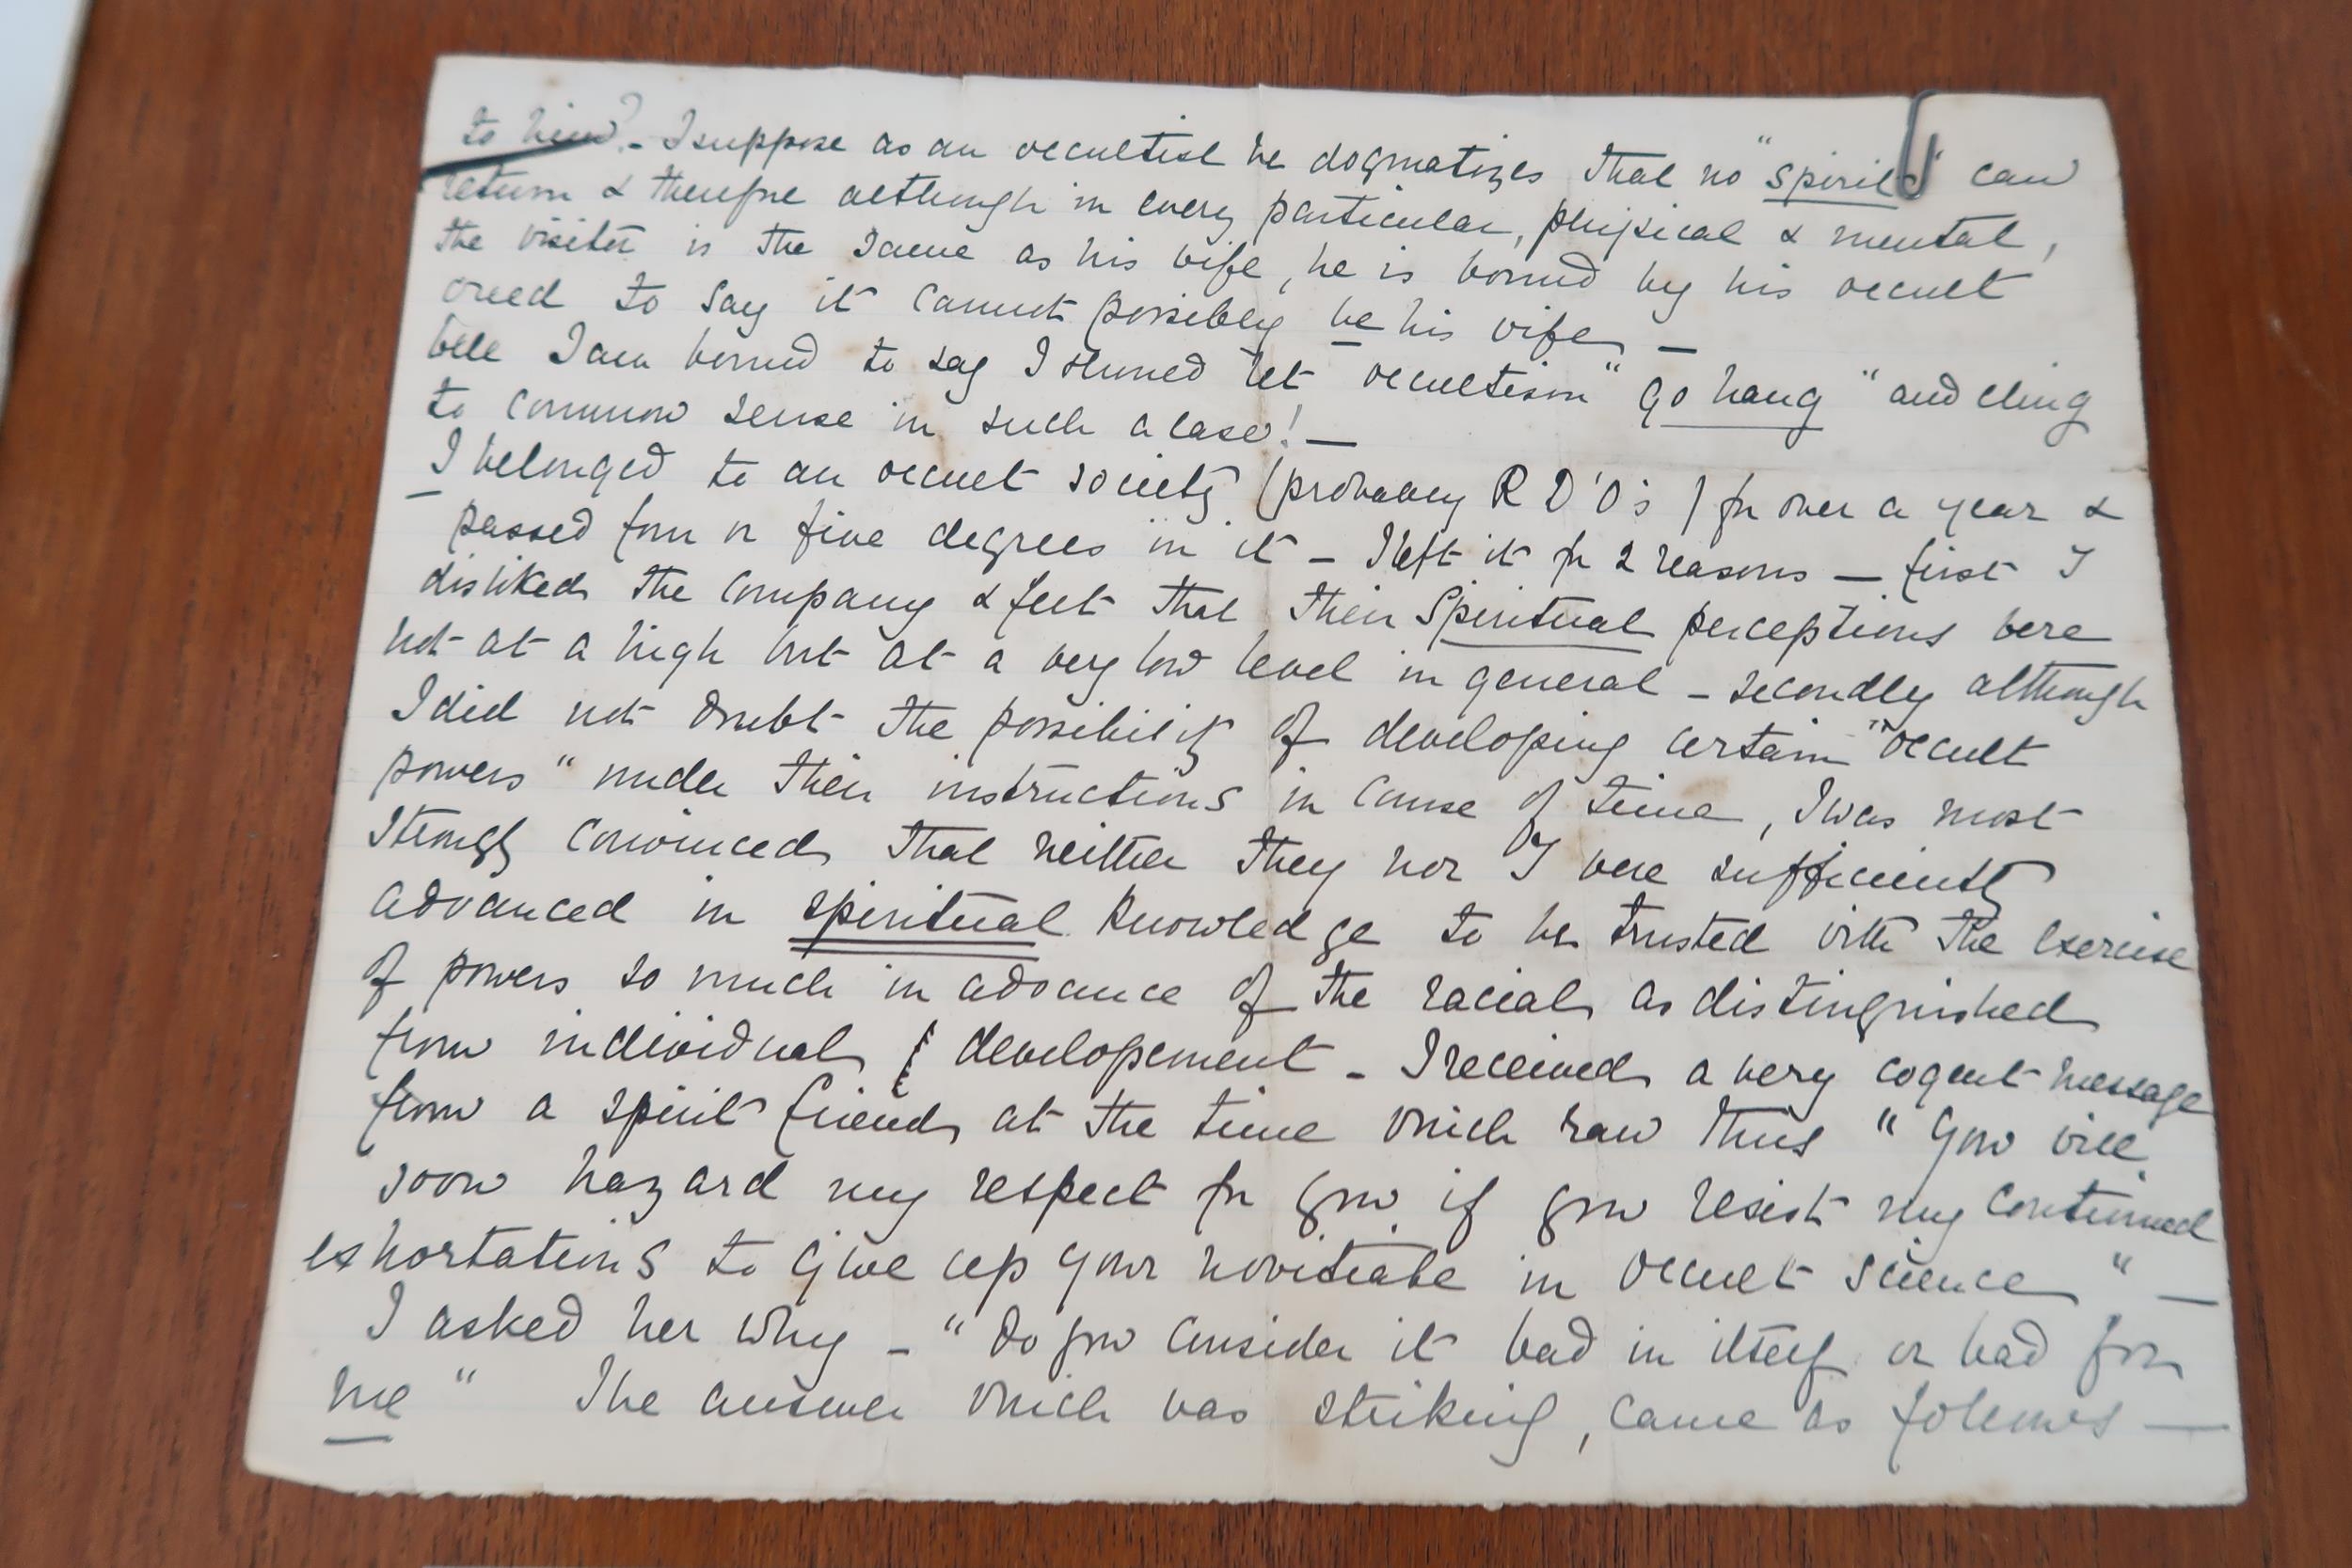 to him? - I suppose as an occultist he dogmatizes that no "spirit" can
return & therefore although in every particular, physical & mental,
the visitor is the same as his wife, he is bound by his occult
creed to say it cannot possibly be his wife —
Well I am bound to say I should let occultism "go hang" and cling
to common sense in such a case! —
I belonged to an occult society (probably R D'O's) for over a year &
passed four or five degrees in it - I left it for 2 reasons — first I
disliked the company & felt that their Spiritual perceptions were
not at a high but at a very low level in general - secondly although
I did not doubt the possibility of developing certain "occult
powers" under their instructions in course of time, I was most
strongly convinced that neither they nor I were sufficiently
advanced in spiritual knowledge to be trusted with the exercise
of powers so much in advance of the racial as distinguished
from individual developement - I received a very cogent message
from a spirit friend at the time which ran thus "You will
soon hazard my respect for you if you resist my continued
exhortations to give up your novitiate in occult science" —
I asked her why - "Do you consider it bad in itself or bad for
me" The answer which was striking, came as follows —